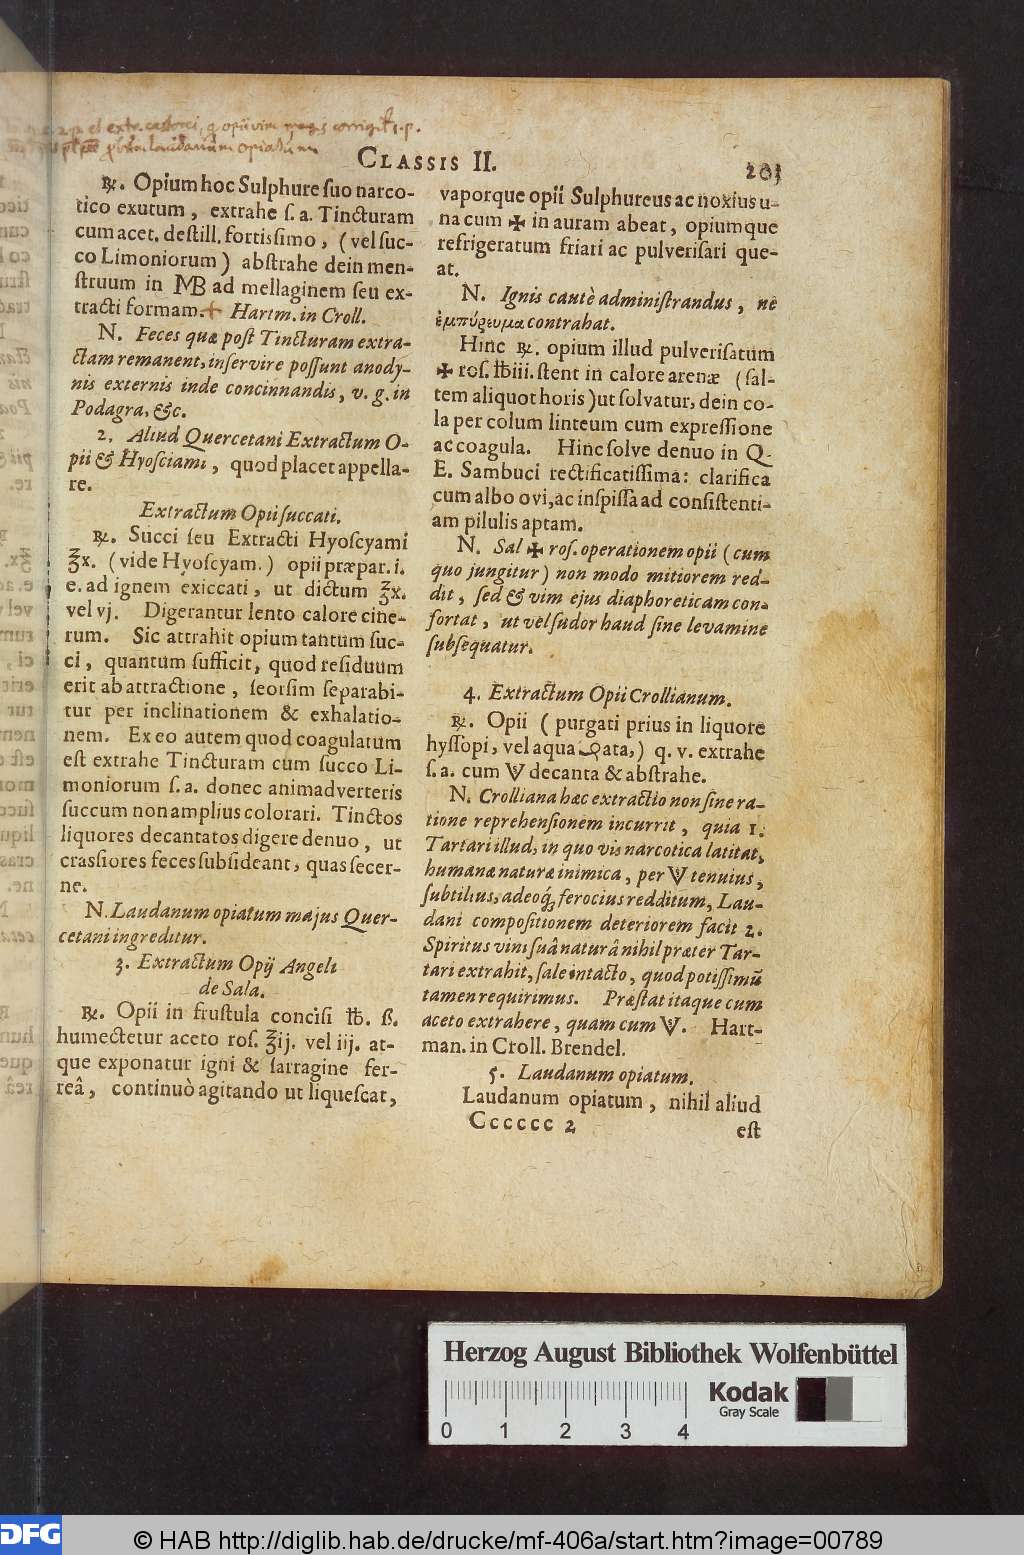 el extr. castorei, q opii vim magis corrigit
laudanum opiatum
CLASSIS II.
203
℞. Opium hoc Sulphure ſuo narco-
tico exutum, extrahe ſ. a. Tincturam
cum acet. deſtill. fortiſſimo, (vel ſuc-
co Limoniorum) abſtrahe dein men-
ſtruum in MB ad mellaginem ſeu ex-
tracti formam.+ Hartm. in Croll.
N. Feces quæ poſt Tincturam extra-
ctam remanent, inſervire poſſunt anody-
nis externis inde concinnandis, v. g. in
Podagra, &c.
2. Aliud Quercetani Extractum O-
pii & Hyoſciami, quod placet appella-
re.
Extractum Opii ſuccati.
℞. Succi ſeu Extracti Hyoſcyami
℥x. (vide Hyoſcyam.) opii præpar. i.
e. ad ignem exiccati, ut dictum ℥x.
vel vj. Digerantur lento calore cine-
rum. Sic attrahit opium tantum ſuc-
ci, quantum ſufficit, quod reſiduum
erit ab attractione, ſeorſim ſeparabi-
tur per inclinationem & exhalatio-
nem. Ex eo autem quod coagulatum
eſt extrahe Tincturam cum ſucco Li-
moniorum ſ. a. donec animadverteris
ſuccum non amplius colorari. Tinctos
liquores decantatos digere denuo, ut
craſſiores feces ſubſideant, quas ſecer-
ne.
N. Laudanum opiatum majus Quer-
cetani ingreditur.
3. Extractum Opij Angeli
de Sala.
℞. Opii in fruſtula conciſi ℔. ß.
humectetur aceto roſ. ℥ij. vel iij. at-
que exponatur igni & ſarragine fer-
reâ, continuò agitando ut liqueſcat,
vaporque opii Sulphureus ac noxius u-
na cum ✠ in auram abeat, opiumque
refrigeratum friari ac pulveriſari que-
at.
N. Ignis cautè adminiſtrandus, nè
ἐμπύρευμα contrahat.
Hinc ℞. opium illud pulveriſatum
✠ roſ. ℔iii. ſtent in calore arenæ (ſal-
tem aliquot horis) ut ſolvatur, dein co-
la per colum linteum cum expreſſione
ac coagula. Hinc ſolve denuo in Q.
E. Sambuci rectificatiſſima: clarifica
cum albo ovi, ac inſpiſſa ad conſiſtenti-
am pilulis aptam.
N. Sal ✠ roſ. operationem opii (cum
quo jungitur) non modo mitiorem red-
dit, ſed & vim ejus diaphoreticam con-
fortat, ut vel ſudor haud ſine levamine
ſubſequatur.
4. Extractum Opii Crollianum.
℞. Opii (purgati prius in liquore
hyſſopi, vel aqua ata,) q. v. extrahe
ſ. a. cum V decanta & abſtrahe.
N. Crolliana hæc extractio non ſine ra-
tione reprehenſionem incurrit, quia 1.
Tartari illud, in quo vis narcotica latitat,
humanæ naturæ inimica, per V tenuius,
ſubtilius, adeoq́; ferocius redditum, Lau-
dani compoſitionem deteriorem facit 2.
Spiritus vini ſuâ naturâ nihil præter Tar-
tari extrahit, ſale intacto, quod potiſſimũ
tamen requirimus. Præſtat itaque cum
aceto extrahere, quam cum V. Hart-
man. in Croll. Brendel.
5. Laudanum opiatum.
Laudanum opiatum, nihil aliud
Cccccc 2
eſt
Herzog August Bibliothek Wolfenbüttel
Kodak
Gray Scale
0 1 2 3 4
DFG
© HAB http://diglib.hab.de/drucke/mf-406a/start.htm?image=00789